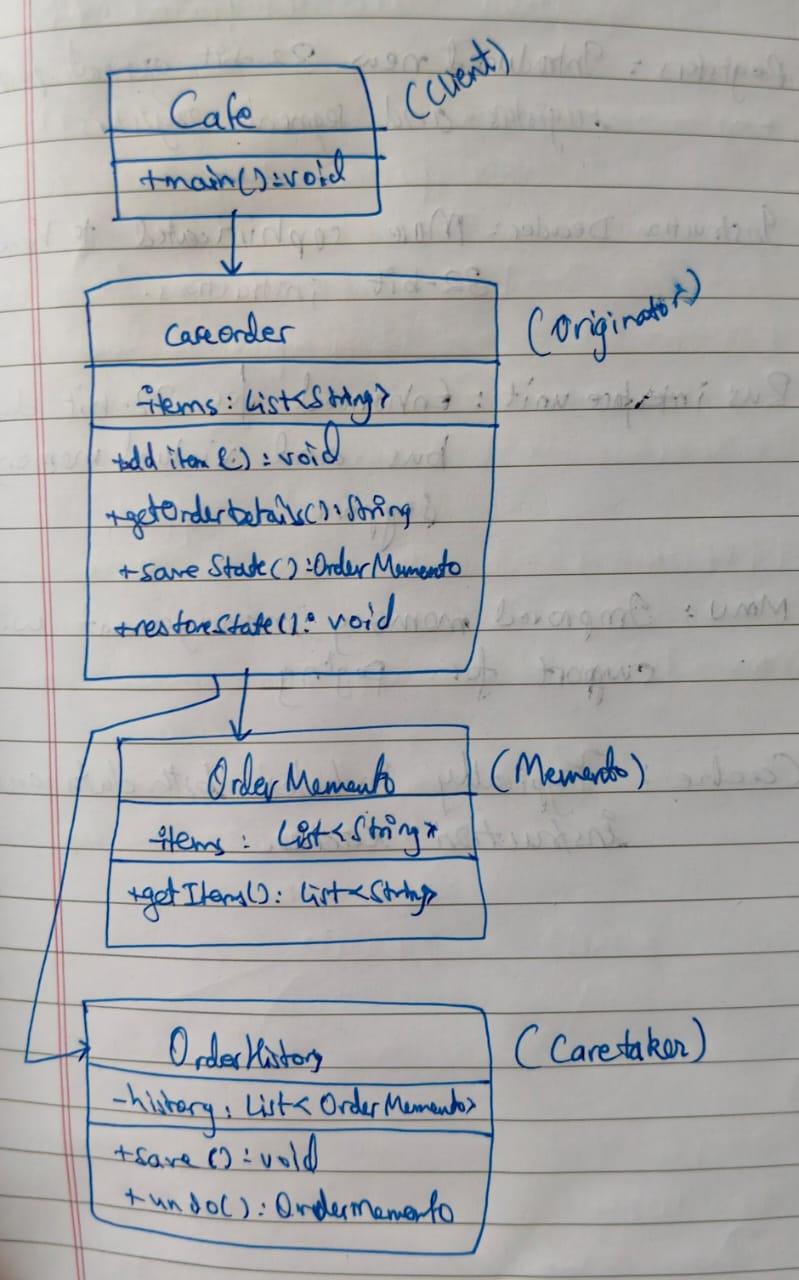 Cafe
(Client)
+main():void
Cafeorder
(Originator)
-items: List<String>
+add item(): void
+getOrderDetails(): String
+save State(): OrderMemento
+restoreState(): void
OrderMemento
(Memento)
-items: List<String>
+getItems(): List<String>
OrderHistory
(Caretaker)
-history: List<OrderMemento>
+save(): void
+undo(): OrderMemento